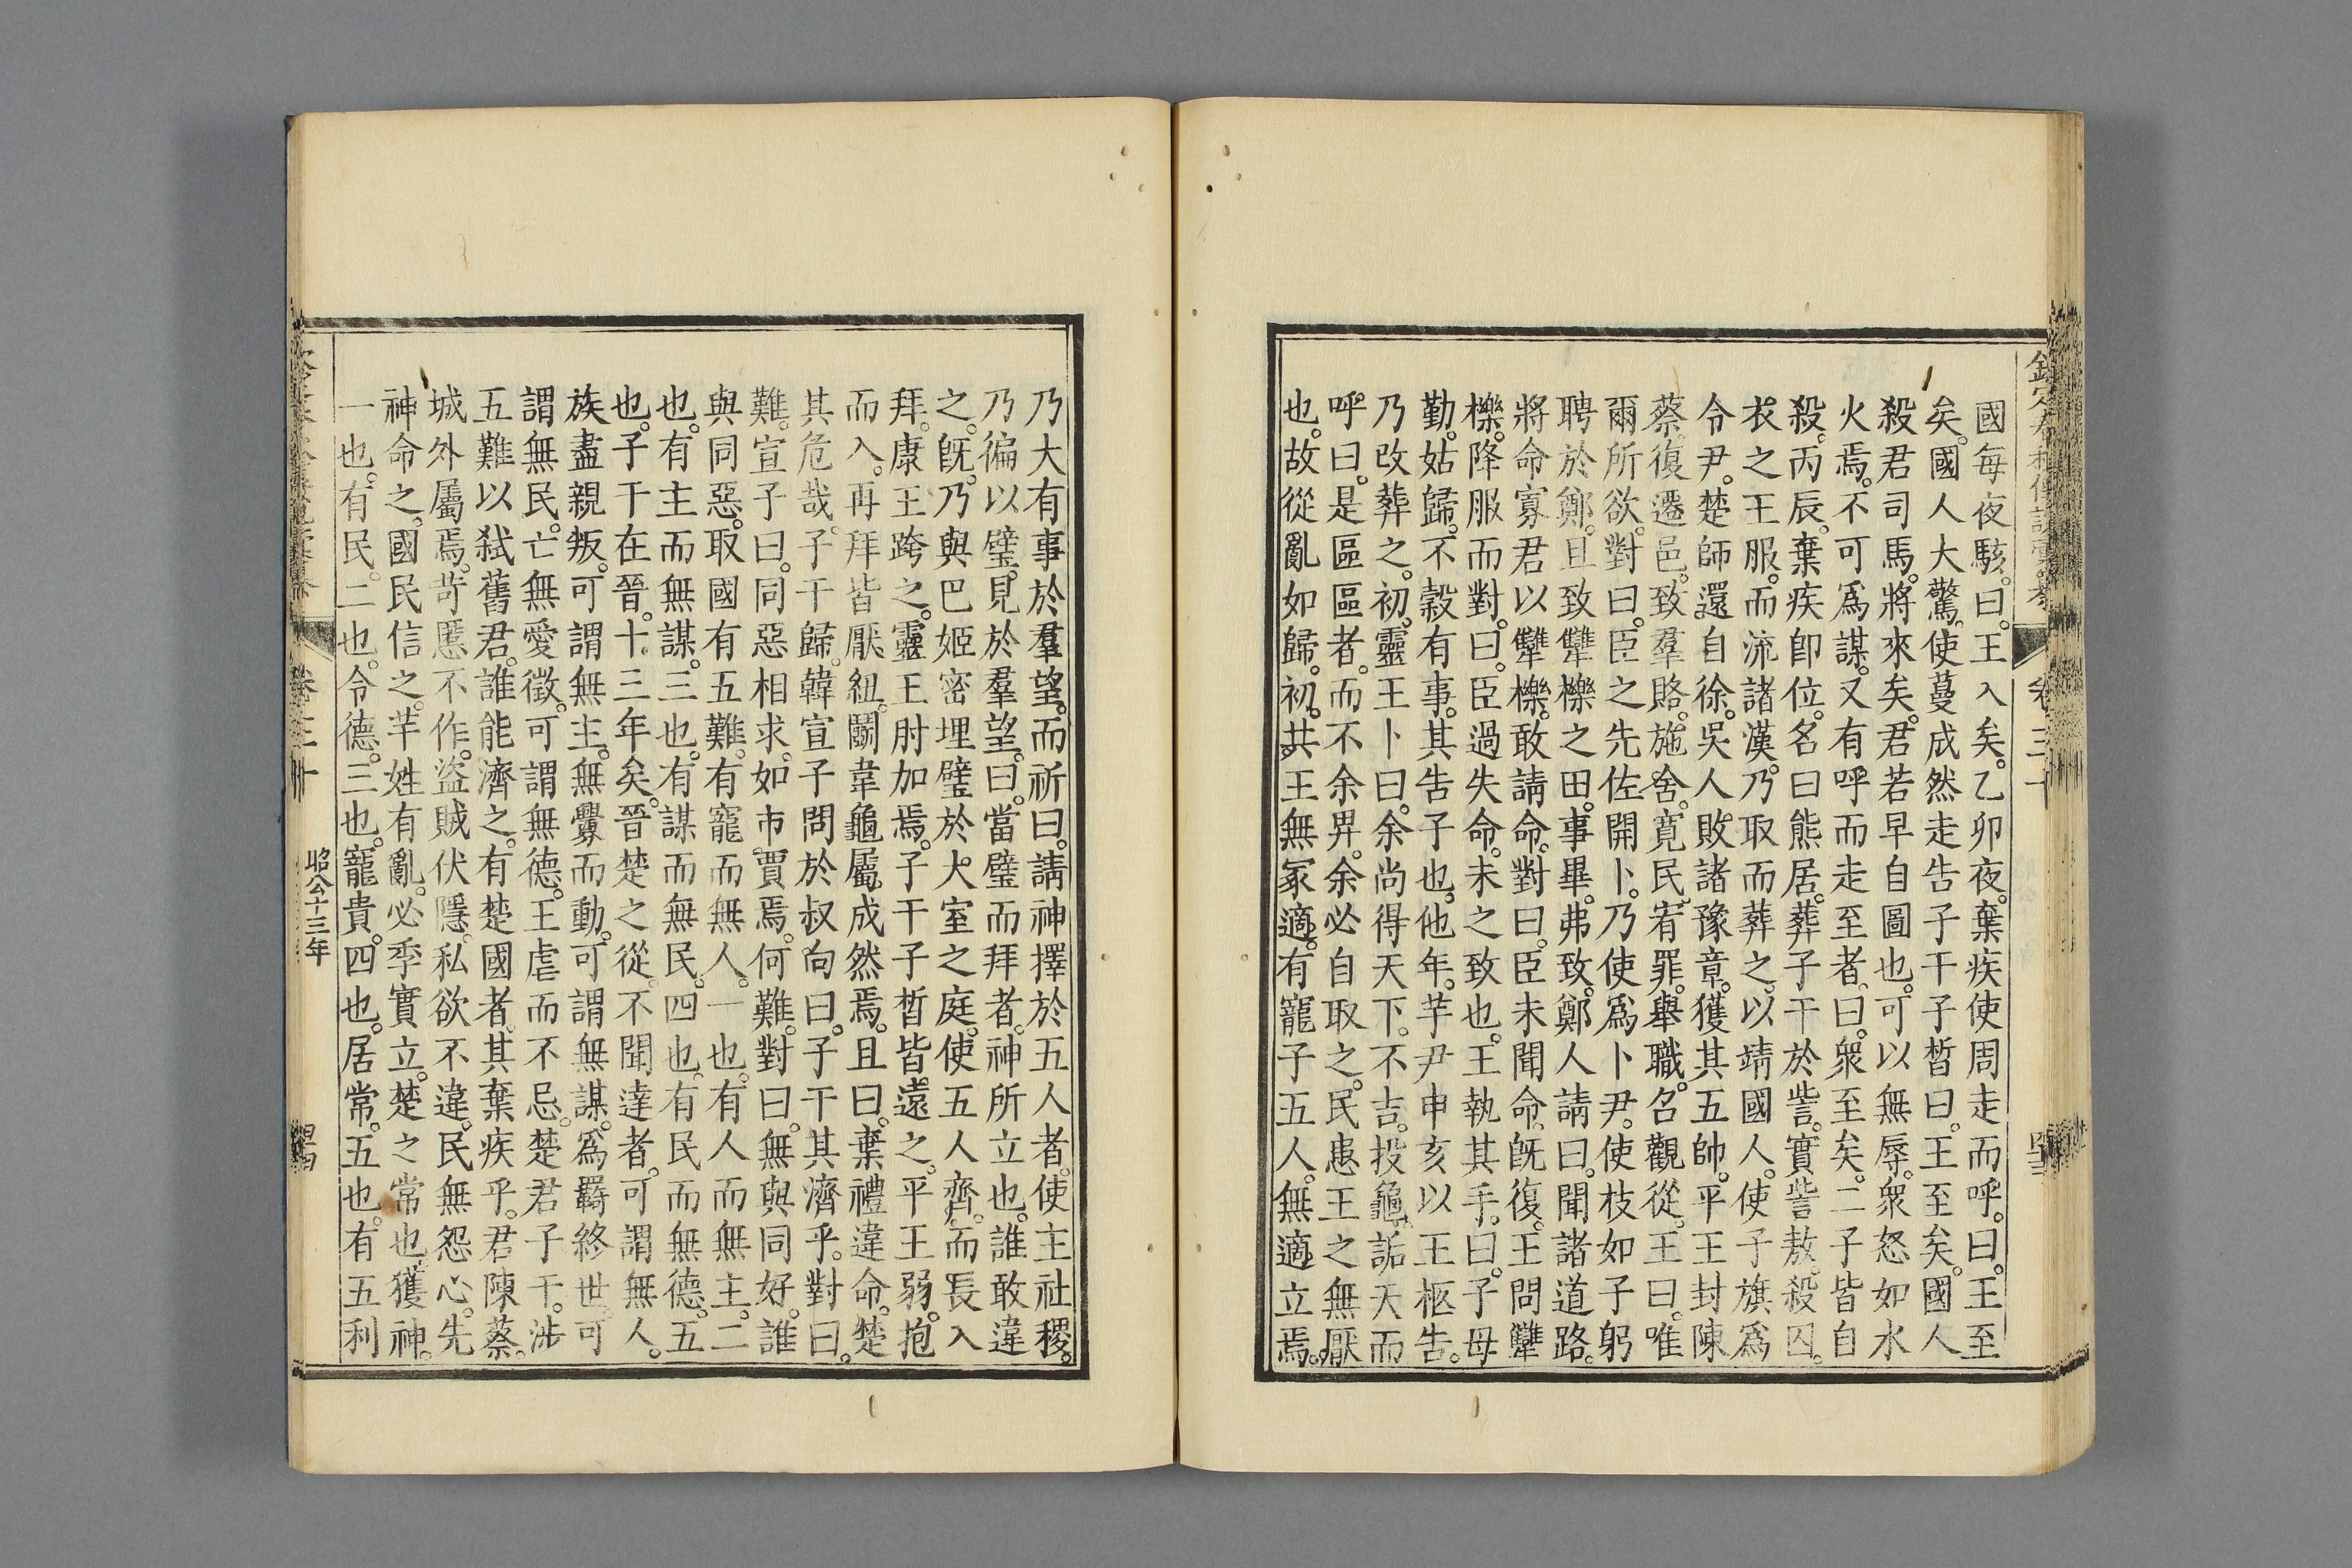 國每夜駭。曰。王入矣。乙卯夜。棄疾使周走而呼。曰。王至
矣。國人大驚。使蔓成然走告子干子皙曰。王至矣。國人
殺君司馬。將來矣。君若早自圖也。可以無辱。衆怒如水
火焉。不可爲謀。又有呼而走至者。曰。衆至矣。二子皆自
殺。丙辰。棄疾卽位。名曰熊居。葬子干於訾。實訾敖。殺囚。
衣之王服。而流諸漢。乃取而葬之。以靖國人。使子旗爲
令尹。楚師還自徐。吳人敗諸豫章。獲其五帥。平王封陳
蔡。復遷邑。致羣賂。施舍。寛民。宥罪。舉職。召觀從。王曰。唯
爾所欲。對曰。臣之先佐開卜。乃使爲卜尹。使枝如子躬
聘於鄭。且致犫櫟之田。事畢。弗致。鄭人請曰。聞諸道路。
將命寡君以犫櫟。敢請命。對曰。臣未聞命。旣復。王問犫
櫟。降服而對。曰。臣過失命。未之致也。王執其手。曰。子毋
勤。姑歸。不糓有事。其告子也。他年。芋尹申亥以王柩告。
乃改葬之。初。靈王卜曰。余尚得天下。不吉。投龜。詬天而
呼曰。是區區者。而不余畀。余必自取之。民患王之無厭
也。故從亂如歸。初。共王無冢適。有寵子五人。無適立焉。
乃大有事於羣望。而祈曰。請神擇於五人者。使主社稷。
乃徧以璧。見於羣望。曰。當璧而拜者。神所立也。誰敢違
之。旣。乃與巴姬密埋璧於大室之庭。使五人齊。而長入
拜。康王跨之。靈王肘加焉。子干子皙皆遠之。平王弱。抱
而入。再拜皆厭紐。鬬韋龜屬成然焉。且曰。棄禮違命。楚
其危哉。子干歸。韓宣子問於叔向曰。子干其濟乎。對曰。
難。宣子曰。同惡相求。如市賈焉。何難。對曰。無與同好。誰
與同惡。取國有五難。有寵而無人。一也。有人而無主。二
也。有主而無謀。三也。有謀而無民。四也。有民而無德。五
也。子干在晉。十三年矣。晉楚之從。不聞達者。可謂無人。
族盡親叛。可謂無主。無釁而動。可謂無謀。爲羇終世。可
謂無民。亡無愛徵。可謂無德。王虐而不忌。楚君子干。涉
五難以弒舊君。誰能濟之。有楚國者。其棄疾乎。君陳蔡。
城外屬焉。苛慝不作。盜賊伏隱。私欲不違。民無怨心。先
神命之。國民信之。芊姓有亂。必季實立。楚之常也。獲神。
一也。有民。二也。令德。三也。寵貴。四也。居常。五也。有五利
昭公十三年